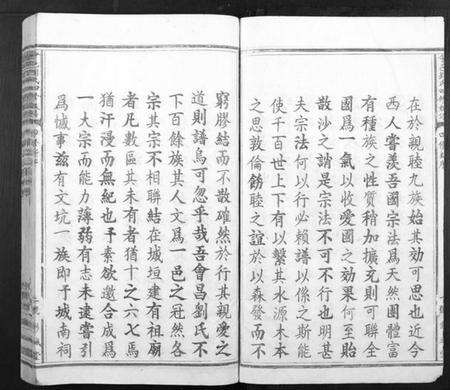 在於親睦九族始其効可思也近今
西人嘗羨吾國宗法爲天然團體富
有種族之性質稍加擴充則可聯全
國爲一氣以收愛國之効果何至貽
散沙之誚是宗法不可不行也明甚
夫宗法何以行必賴譜以係之斯能
使千百世上下有以繫其水源木本
之思敦倫飭睦之誼於以森發而不
窮膠結而不散確然於行其親愛之
道則譜烏可忽乎哉吾會昌劉氏不
下百餘族其人文爲一邑之冠然各
宗其宗不相聯結在城垣建有祖廟
者凡數區其未有者猶十之六七焉
猶汗漫而無紀也予素欲邀合成爲
一大宗而能力薄弱有志未逮嘗引
爲憾事玆有文坑一族即予城南祠